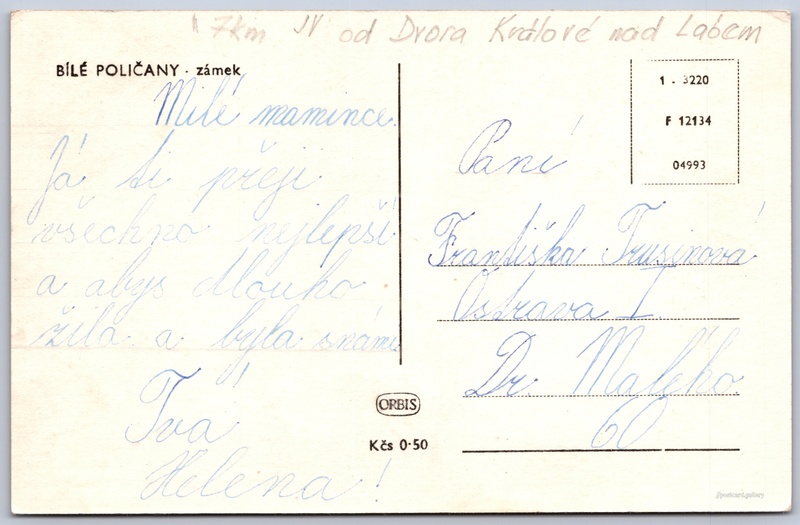 7km JV od Dvora Králové nad Labem
BÍLÉ POLIČANY - zámek
Milé mamince.
Já ti přeji
všechno nejlepší
a abys dlouho
žila a byla snámi
Tvá
Helena!
ORBIS
Kčs 0·50
1 - 3220
F 12134
04993
Paní
Františka Trusinová
Ostrava I
Dr. Malého
60